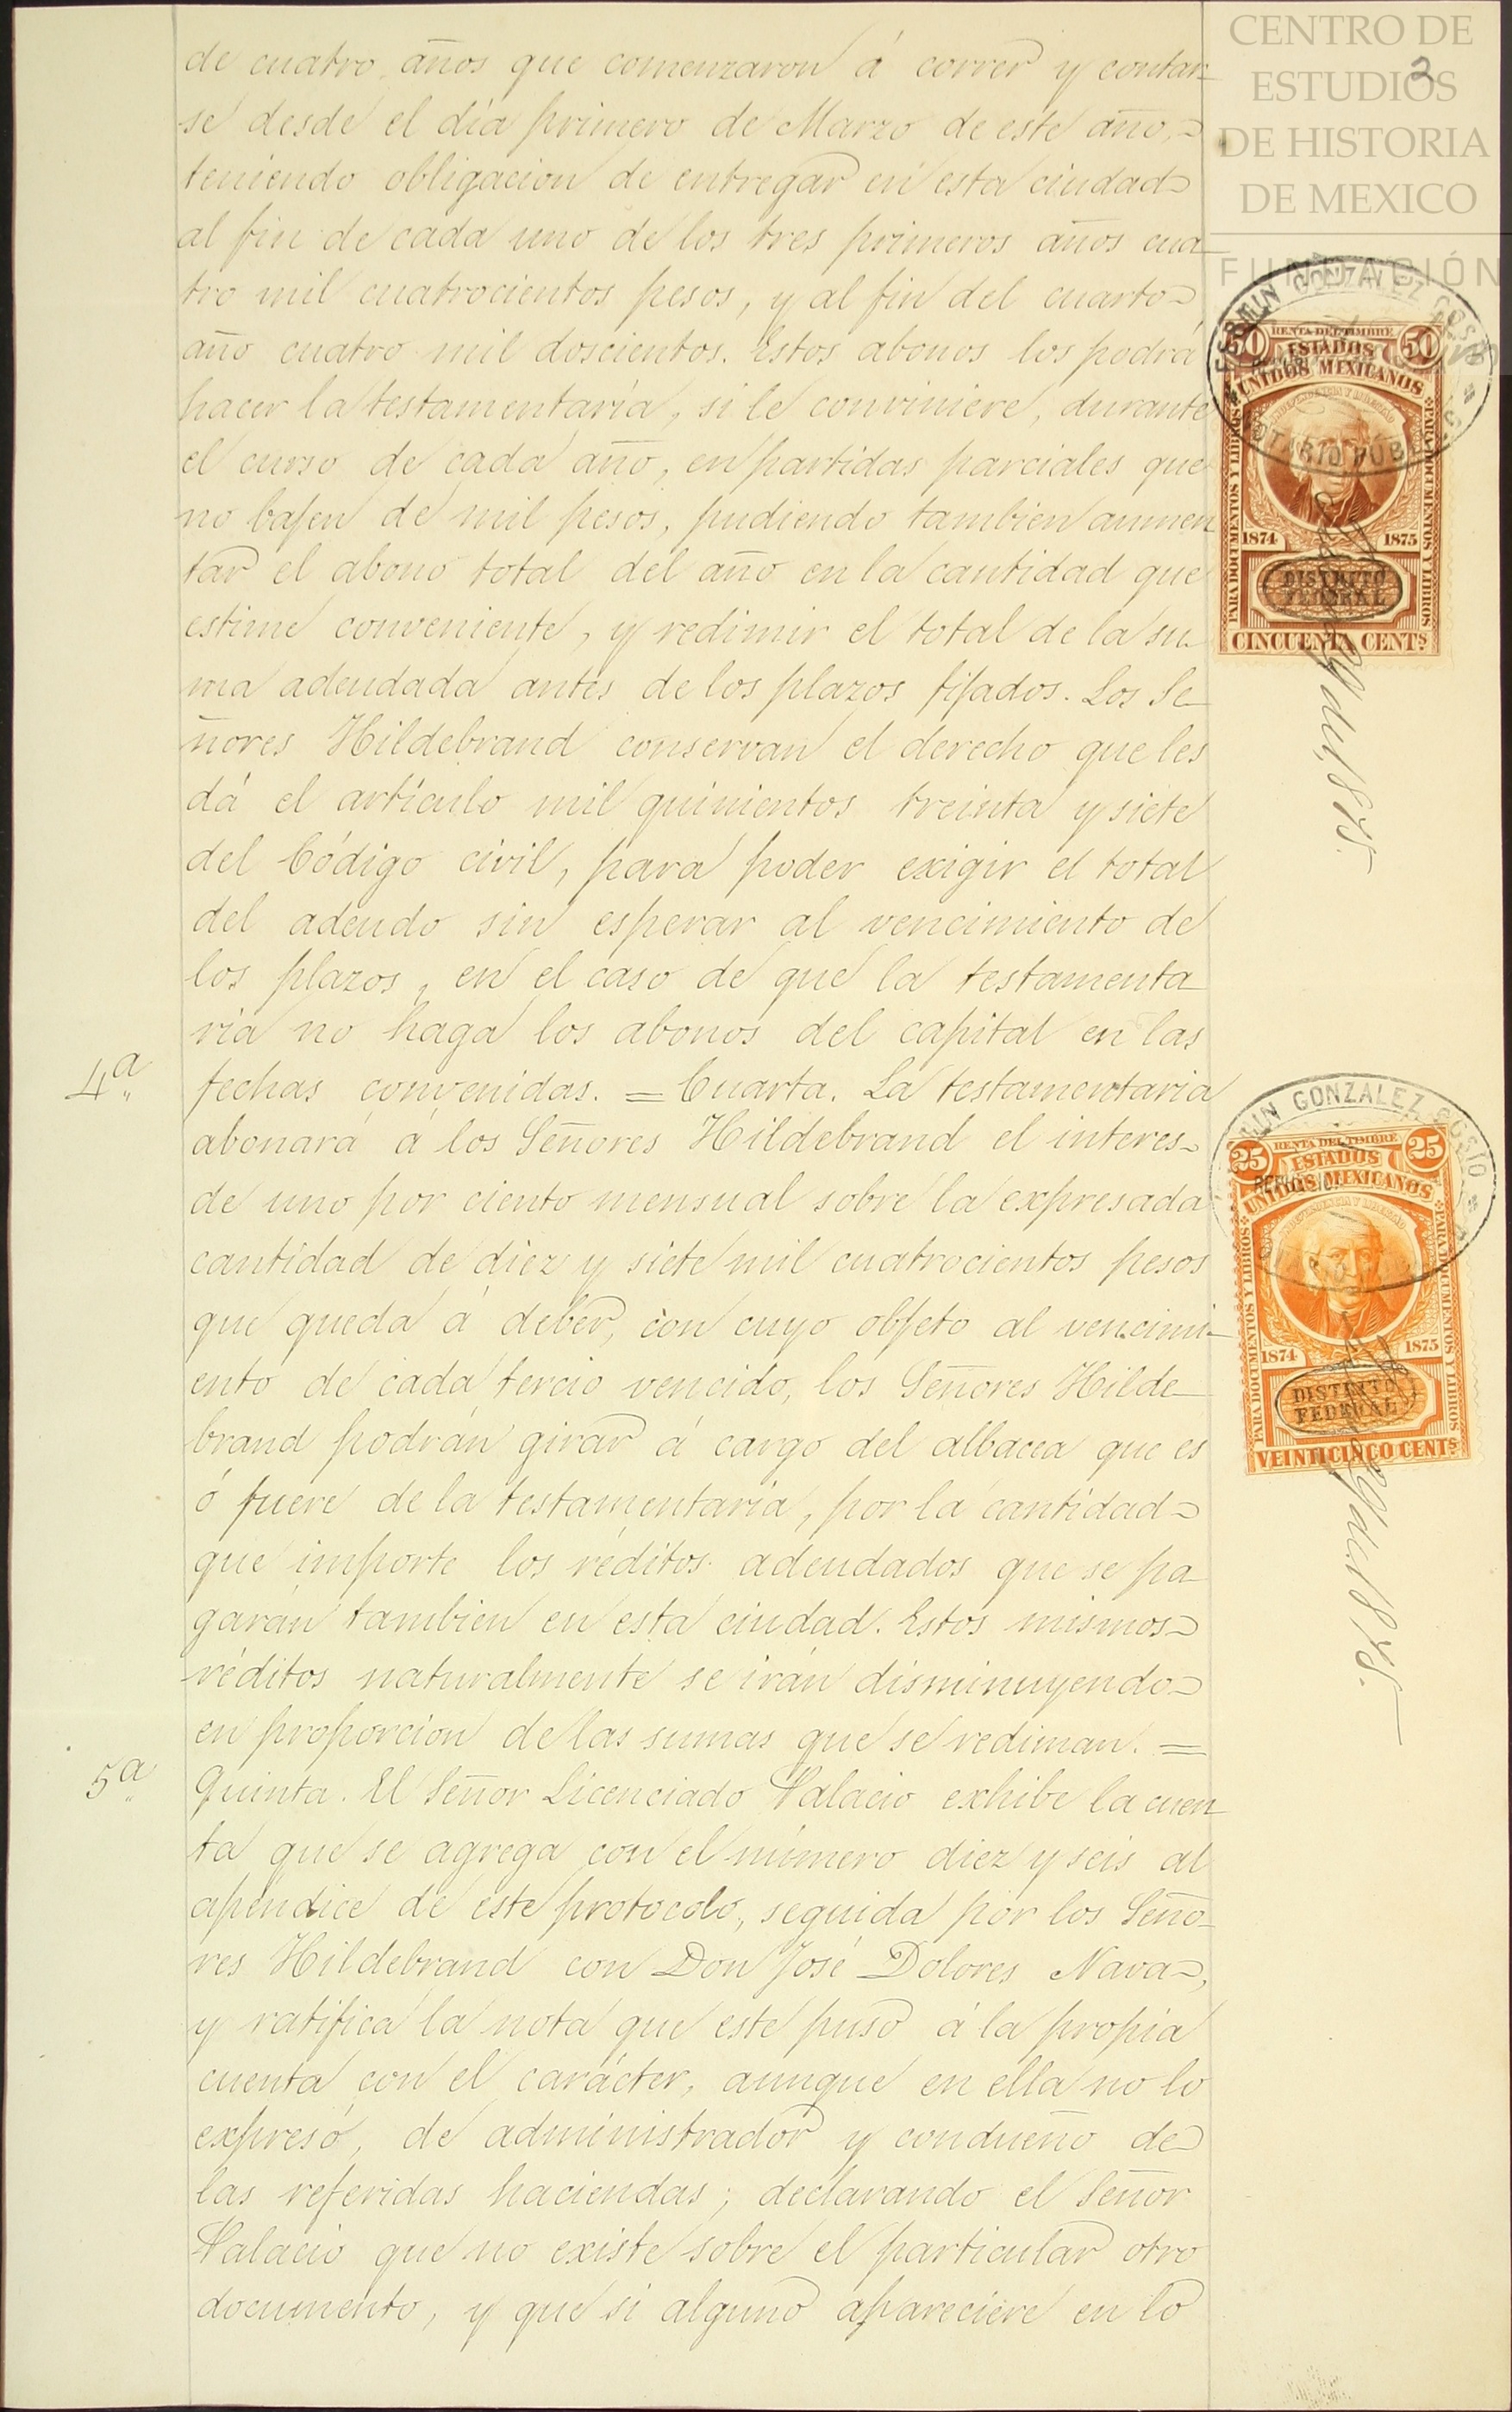 CENTRO DE
ESTUDIOS
DE HISTORIA
DE MEXICO
FUNDACIÓN
2
de cuatro años que comenzaron á correr y contar
se desde el día primero de Marzo de este año,
teniendo obligacion de entregar en esta ciudad
al fin de cada uno de los tres primeros años cua
tro mil cuatrocientos pesos, y al fin del cuarto
año cuatro mil doscientos. Estos abonos los podrá
hacer la testamentaría, si le conviniere, durante
el curso de cada año, en partidas parciales que
no bajen de mil pesos, pudiendo tambien aumen
tar el abono total del año en la cantidad que
estime conveniente, y redimir el total de la su
ma adeudada antes de los plazos fijados. Los Se
ñores Hildebrand conservan el derecho que les
dá el artículo mil quinientos treinta y siete
del Código civil, para poder exigir el total
del adeudo sin esperar al vencimiento de
los plazos, en el caso de que la testamenta
ria no haga los abonos del capital en las
4ª fechas convenidas. = Cuarta. La testamentaria
abonará á los Señores Hildebrand el interes
de uno por ciento mensual sobre la expresada
cantidad de diez y siete mil cuatrocientos pesos
que queda á deber, con cuyo objeto al vencimi
ento de cada tercio vencido, los Señores Hilde
brand podrán girar á cargo del albacea que es
ó fuere de la testamentaria, por la cantidad
que importe los réditos adeudados que se pa
garán tambien en esta ciudad. Estos mismos
réditos naturalmente se irán disminuyendo
en proporcion de las sumas que se rediman. =
5ª Quinta. El Señor Licenciado Palacio exhibe la cuen
ta que se agrega con el número diez y seis al
apéndice de este protocolo, seguida por los Seño
res Hildebrand con Don José Dolores Nava,
y ratifica la nota que este puso á la propia
cuenta con el carácter, aunque en ella no lo
expresó, de administrador y condueño de
las referidas haciendas; declarando el Señor
Palacio que no existe sobre el particular otro
documento, y que si alguno apareciere en lo
FERMIN GONZALEZ COSIO
NOTARIO PUBLICO
50 RENTA DEL TIMBRE 50
ESTADOS
UNIDOS MEXICANOS
PARA DOCUMENTOS Y LIBROS
PARA DOCUMENTOS Y LIBROS
1874 1875
DISTRITO
FEDERAL
CINCUENTA CENTS
1875.
GONZALEZ COSIO
25 RENTA DEL TIMBRE 25
ESTADOS
UNIDOS MEXICANOS
PARA DOCUMENTOS Y LIBROS
PARA DOCUMENTOS Y LIBROS
1874 1875
DISTRITO
FEDERAL
VEINTICINCO CENTS
1875.